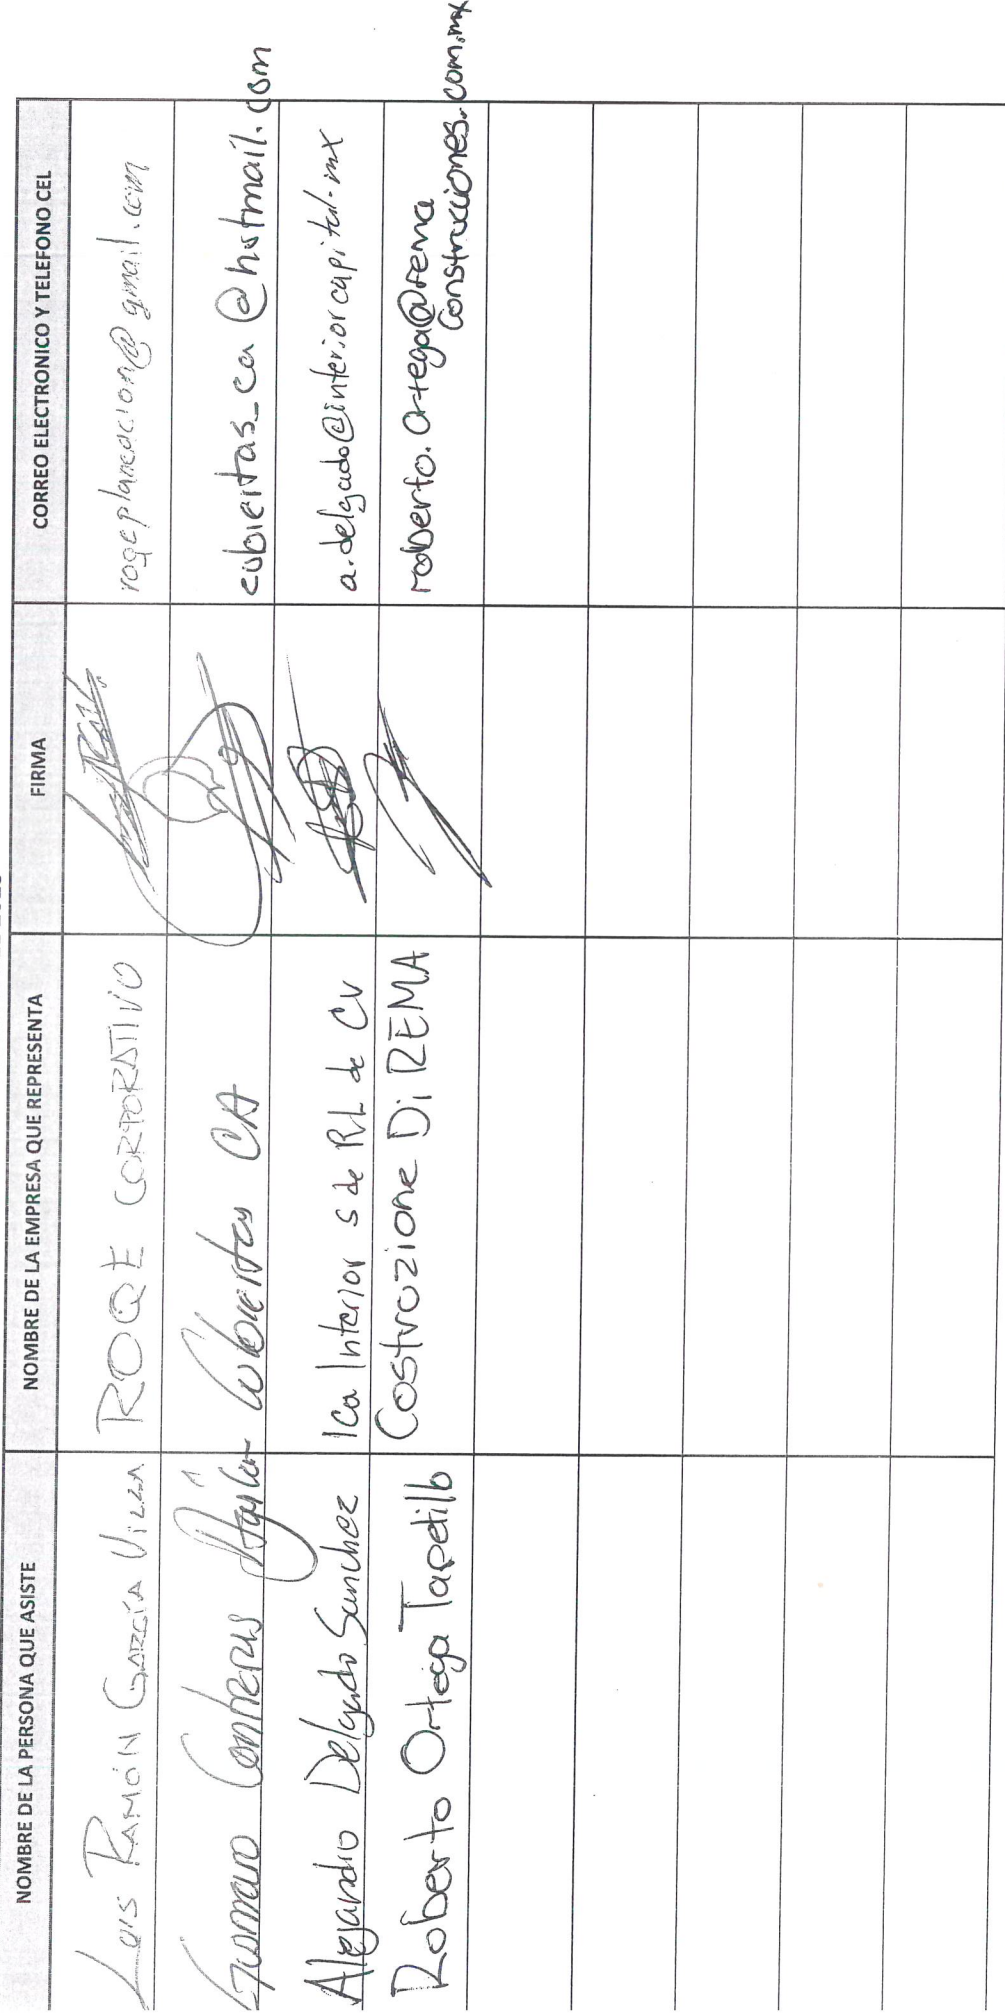 NOMBRE DE LA PERSONA QUE ASISTE NOMBRE DE LA EMPRESA QUE REPRESENTA FIRMA CORREO ELECTRONICO Y TELEFONO CEL
LUIS RAMÓN GARCÍA VILLA ROQE CORPORATIVO roqeplaneacion@gmail.com
Contreras Aguilar Cubiertas CA cubiertas_ca@hotmail.com
Alejandro Delgado Sanchez Ica Interior S de RL de CV a.delgado@interiorcapital.mx
Roberto Ortega Tapetillo Costruzione Di REMA roberto.ortega@rema
construcciones.com.mx